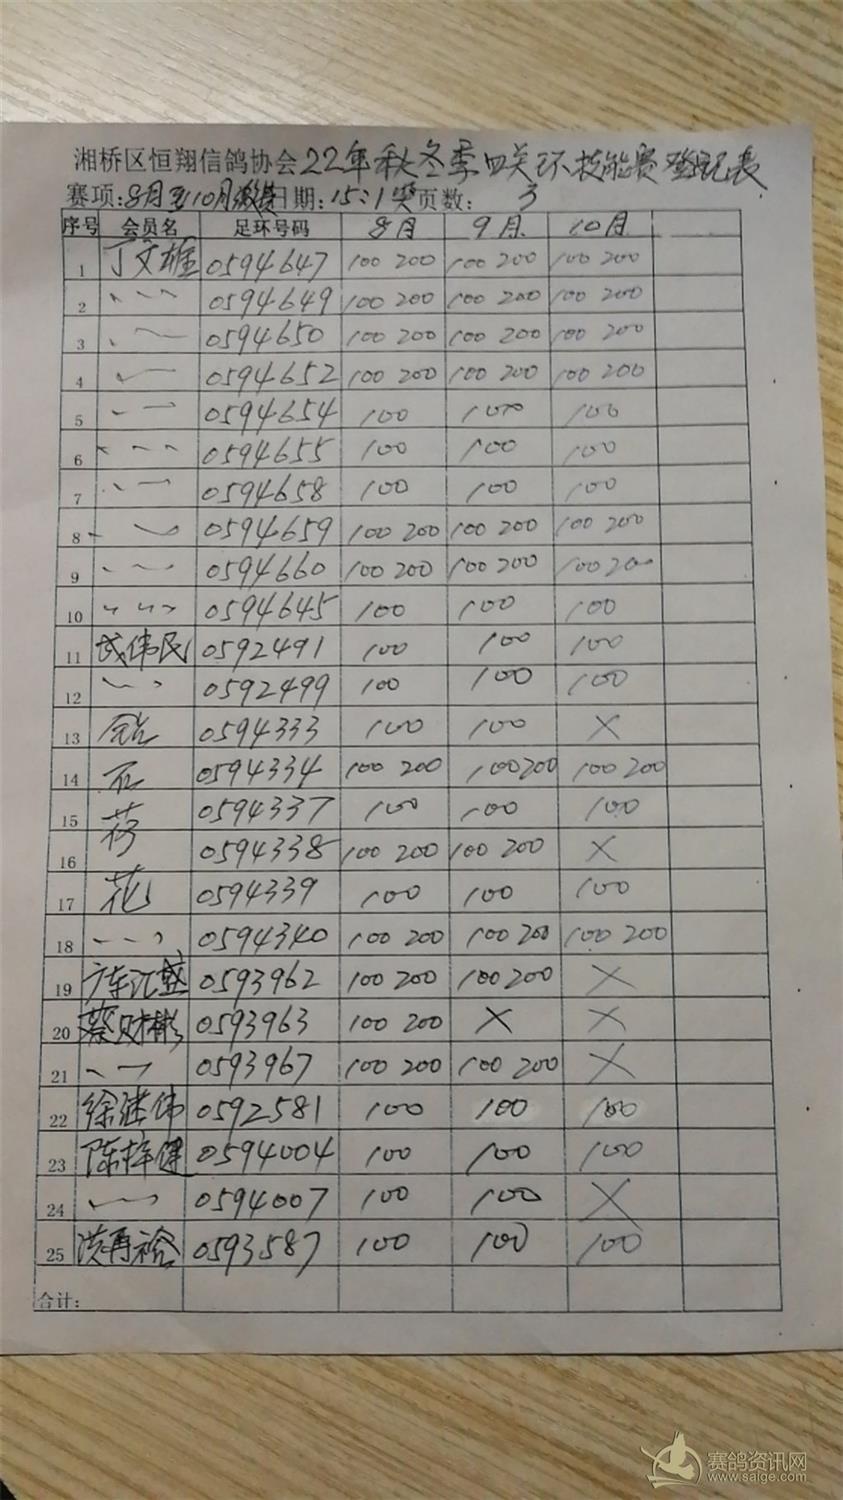 湘桥区恒翔信鸽协会22年秋冬季四关环技能赛登记表
赛项:8月至10月缴费日期:15:1奖页数: 3
序号 会员名 足环号码 8月 9月 10月
1 丁文雄 0594647 100 200 100 200 100 200
2 0594649 100 200 100 200 100 200
3 0594650 100 200 100 200 100 200
4 0594652 100 200 100 200 100 200
5 0594654 100 100 100
6 0594655 100 100 100
7 0594658 100 100 100
8 0594659 100 200 100 200 100 200
9 0594660 100 200 100 200 100 200
10 0594645 100 100 100
11 伟民 0592491 100 100 100
12 0592499 100 100 100
13 0594333 100 100 ×
14 石 0594334 100 200 100 200 100 200
15 荷 0594337 100 100 100
16 0594338 100 200 100 200 ×
17 花 0594339 100 100 100
18 0594340 100 200 100 200 100 200
19 广东汇盛 0593962 100 200 100 200 ×
20 蔡财彬 0593963 100 200 × ×
21 0593967 100 200 100 200 ×
22 徐继伟 0592581 100 100 100
23 陈梓健 0594004 100 100 100
24 0594007 100 100 ×
25 洪再裕 0593587 100 100 100
合计:
赛鸽资讯网
www.saige.com